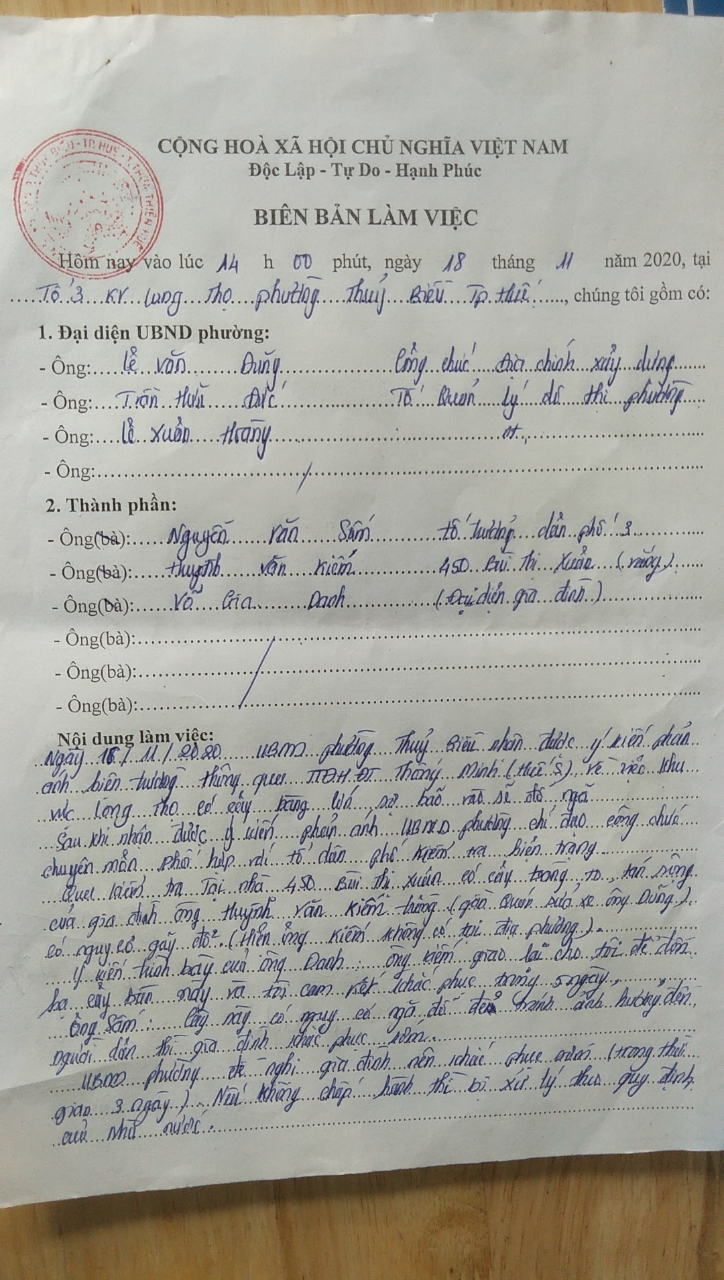 CỘNG HOÀ XÃ HỘI CHỦ NGHĨA VIỆT NAM
Độc Lập - Tự Do - Hạnh Phúc
BIÊN BẢN LÀM VIỆC
Hôm nay vào lúc 14 h 00 phút, ngày 18 tháng 11 năm 2020, tại
Tổ 3 KV Long Thọ phường Thuỷ Biều Tp Huế, chúng tôi gồm có:
1. Đại diện UBND phường:
- Ông: Lê Văn Dũng Công chức Địa chính xây dựng
- Ông: Trần Hữu Đức Tổ Quản lý đô thị phường
- Ông: Lê Xuân Hoàng nt
- Ông:
2. Thành phần:
- Ông(bà): Nguyễn Văn Sấm tổ trưởng dân phố 3
- Ông(bà): Huỳnh Văn Kiếm 450 Bùi Thị Xuân (vắng)
- Ông(bà): Võ Gia Danh (Đại diện gia đình)
- Ông(bà):
- Ông(bà):
- Ông(bà):
Nội dung làm việc:
Ngày 16/11/2020 UBND phường Thuỷ Biều nhận được ý kiến phản
ánh hiện tượng thông qua ĐT Thông Minh (Huế S) về việc khu
vực Long Thọ có cây bàng lớn, bão vào sẽ đổ ngã
Sau khi nhận được ý kiến phản ánh UBND phường chỉ đạo công chức
chuyên môn phối hợp với tổ dân phố kiểm tra hiện trạng
Qua kiểm tra Tại nhà 450 Bùi Thị Xuân có cây trồng to, tán rộng
của gia đình ông Huỳnh Văn Kiếm trồng (gần Quán sửa xe ông Dũng)
có nguy cơ gãy đổ. (Hiện ông Kiếm không có tại địa phương).
Ý kiến trình bày của ông Danh: ông Kiếm giao lại cho tôi để dọn
hạ cây bàn này và tôi cam kết khắc phục trong 5 ngày.
Ông Sấm: Cây này có nguy cơ ngã đổ để tránh ảnh hưởng đến
người dân thì gia đình khắc phục sớm.
UBND phường đề nghị gia đình nên khắc phục sớm (trong thời
gian 3 ngày). Nếu không chấp hành thì bị xử lý theo quy định
của nhà nước.